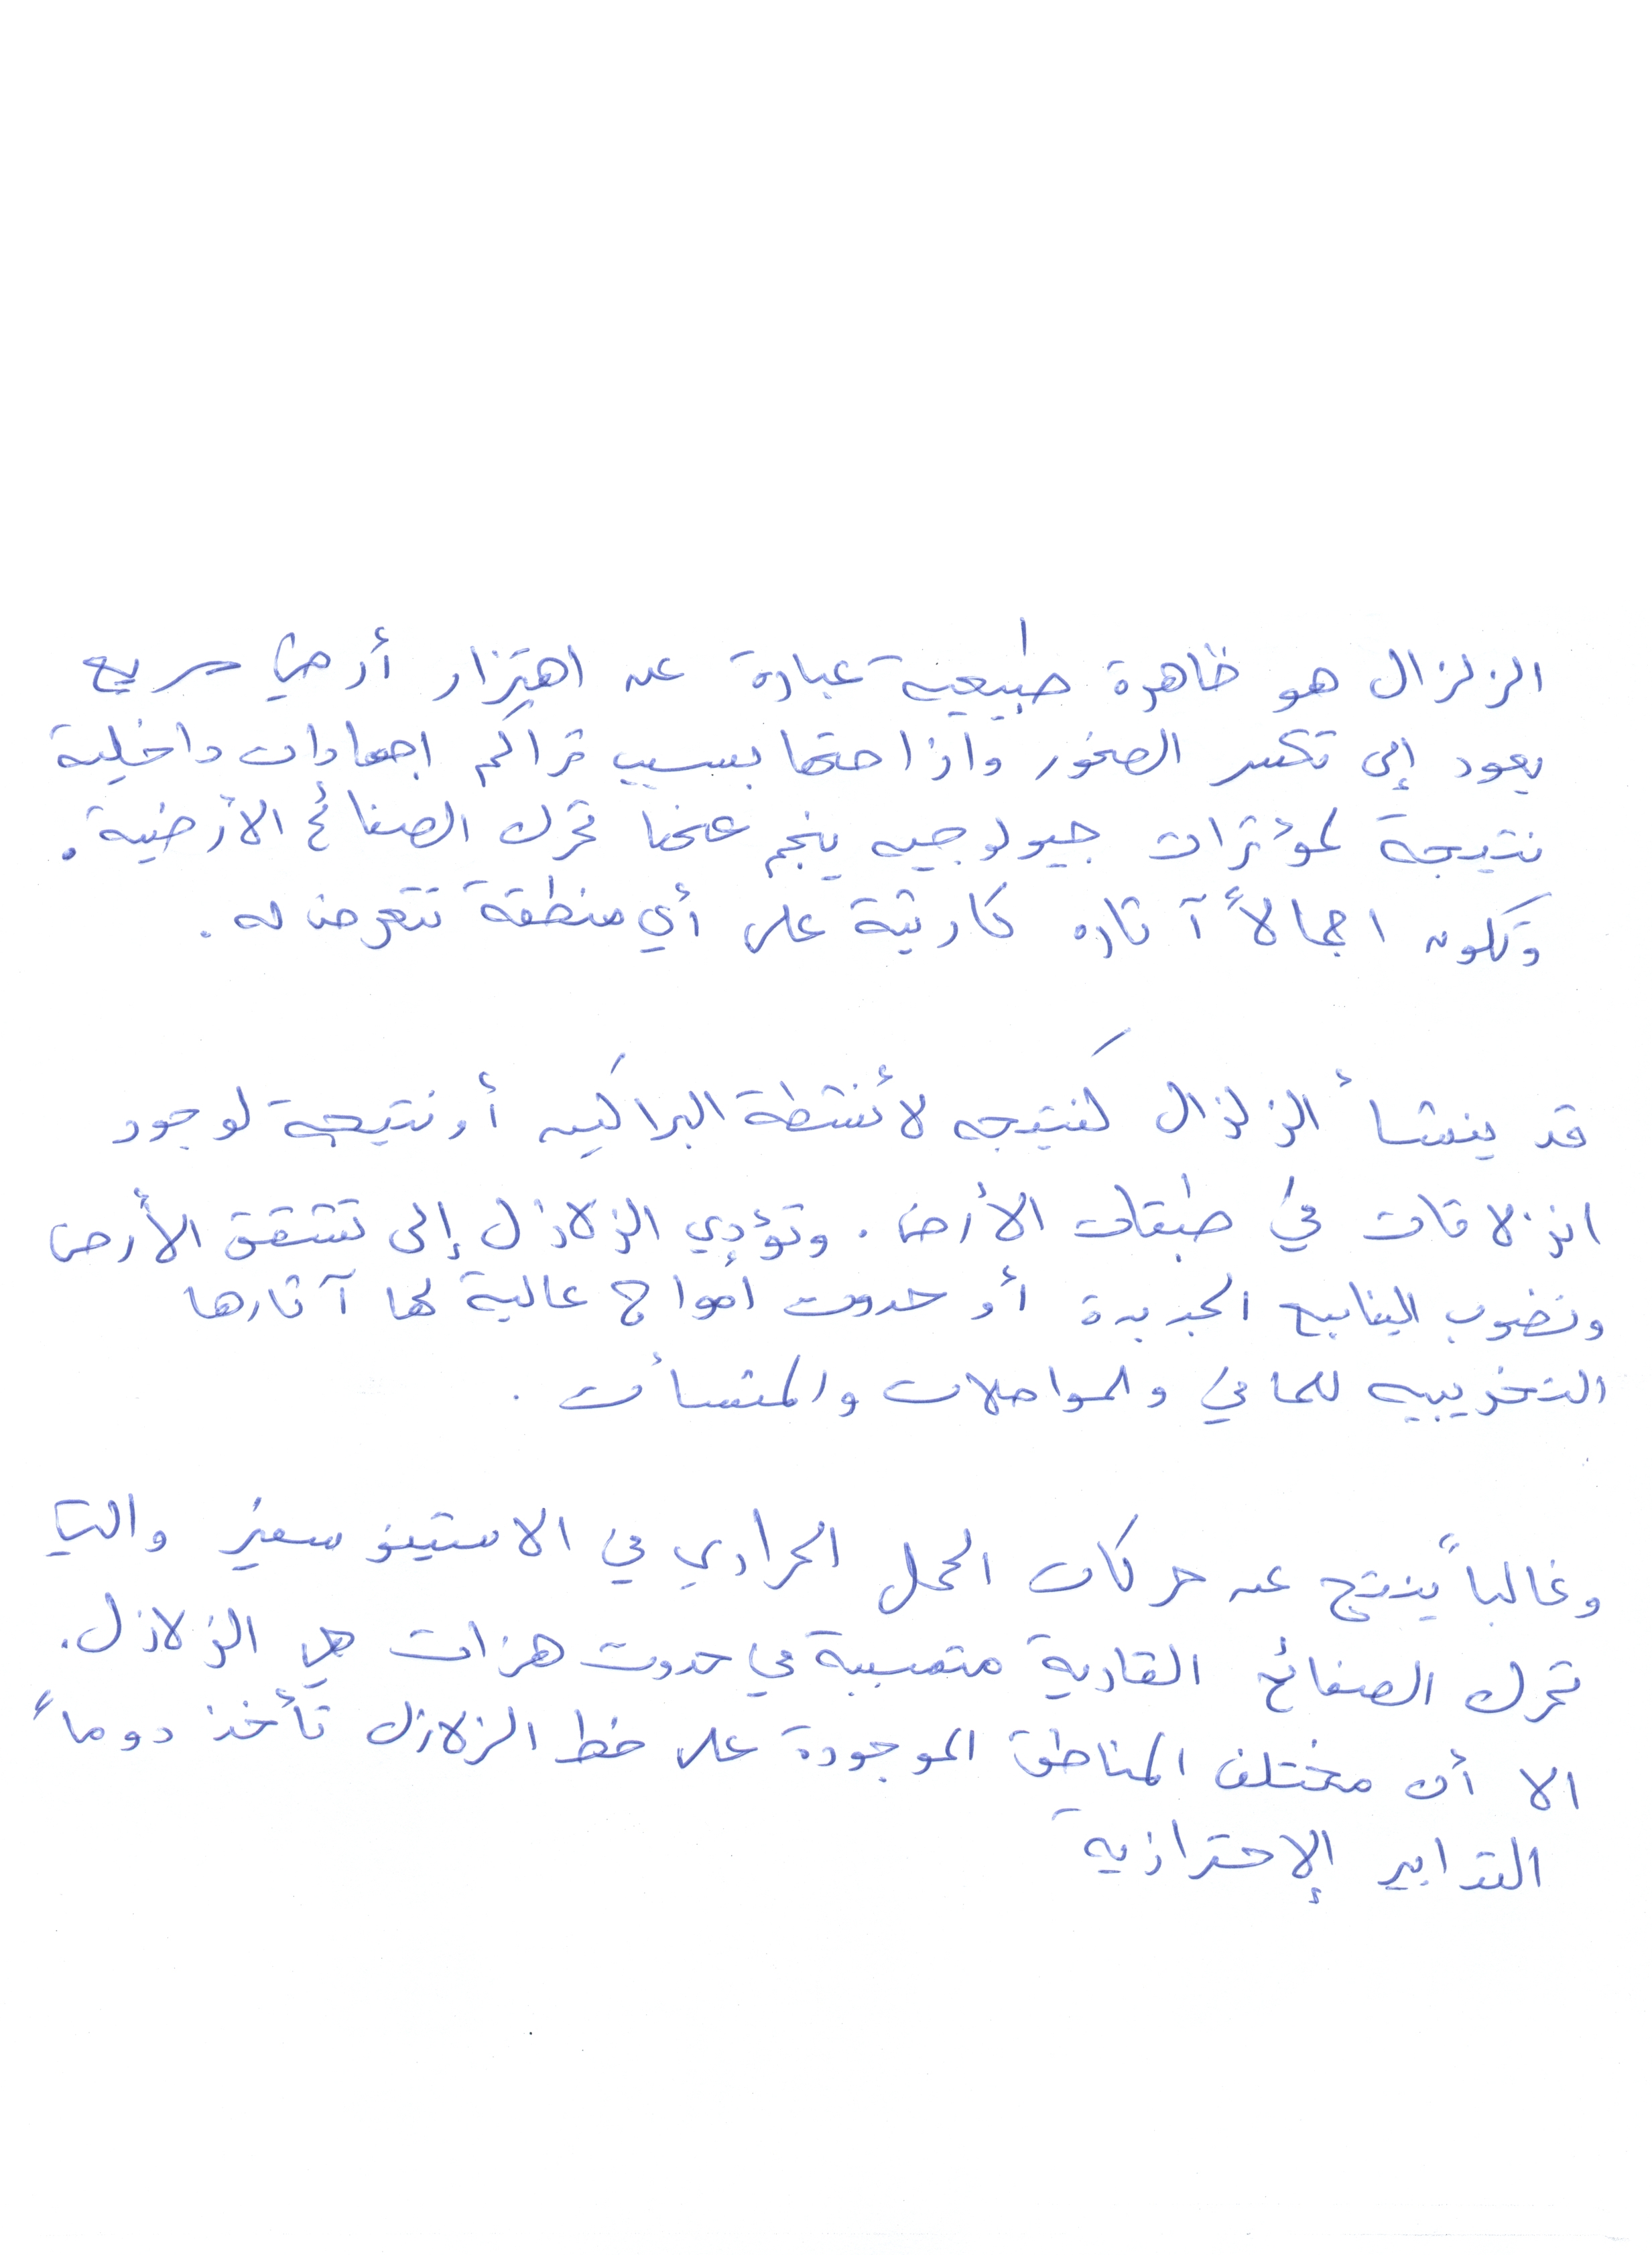 الزلزال هو ظاهرة طبيعية عبارة عن اهتزاز أرضي سريع
يعود إلى تكسر الصخور وازاحتها بسبب تراكم اجهادات داخلية
نتيجة لمؤثرات جيولوجيه ينجم عنها تحرك الصفائح الأرضية.
وتكون اجمالاً آثاره كارثية على أي منطقة تتعرض له.
قد ينشأ الزلزال كنتيجه لأنشطة البراكين أو نتيجة لوجود
انزلاقات في طبقات الأرض. وتؤدي الزلازل إلى تشقق الأرض
ونضوب الينابيع الجديدة أو حدوث أمواج عالية لها آثارها
التخريبيه للمباني والمواصلات والمنشأت.
وغالباً ينتج عن حركات الحمل الحراري في الاستينوسفير والتي
تحرك الصفائح القارية متسببة في حدوث هزات هي الزلازل.
الا أن مختلف المناطق الموجودة على خط الزلازل تأخذ دوماً
التدابير الإحترازية